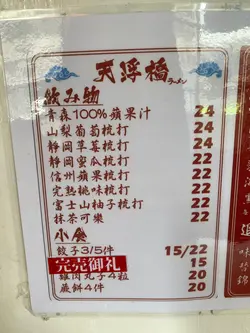 天浮橋ラーメン
飲み物
青森100%蘋果汁 24
山梨葡萄梳打 24
靜岡草莓梳打 24
靜岡蜜瓜梳打 22
信州蘋果梳打 22
完熟桃味梳打 22
富士山柚子梳打 22
抹茶可樂 22
小食
餃子3/5件 15/22
完売御礼 15
雞肉丸子4粒 20
蕨餅4件 20
追
味
錦